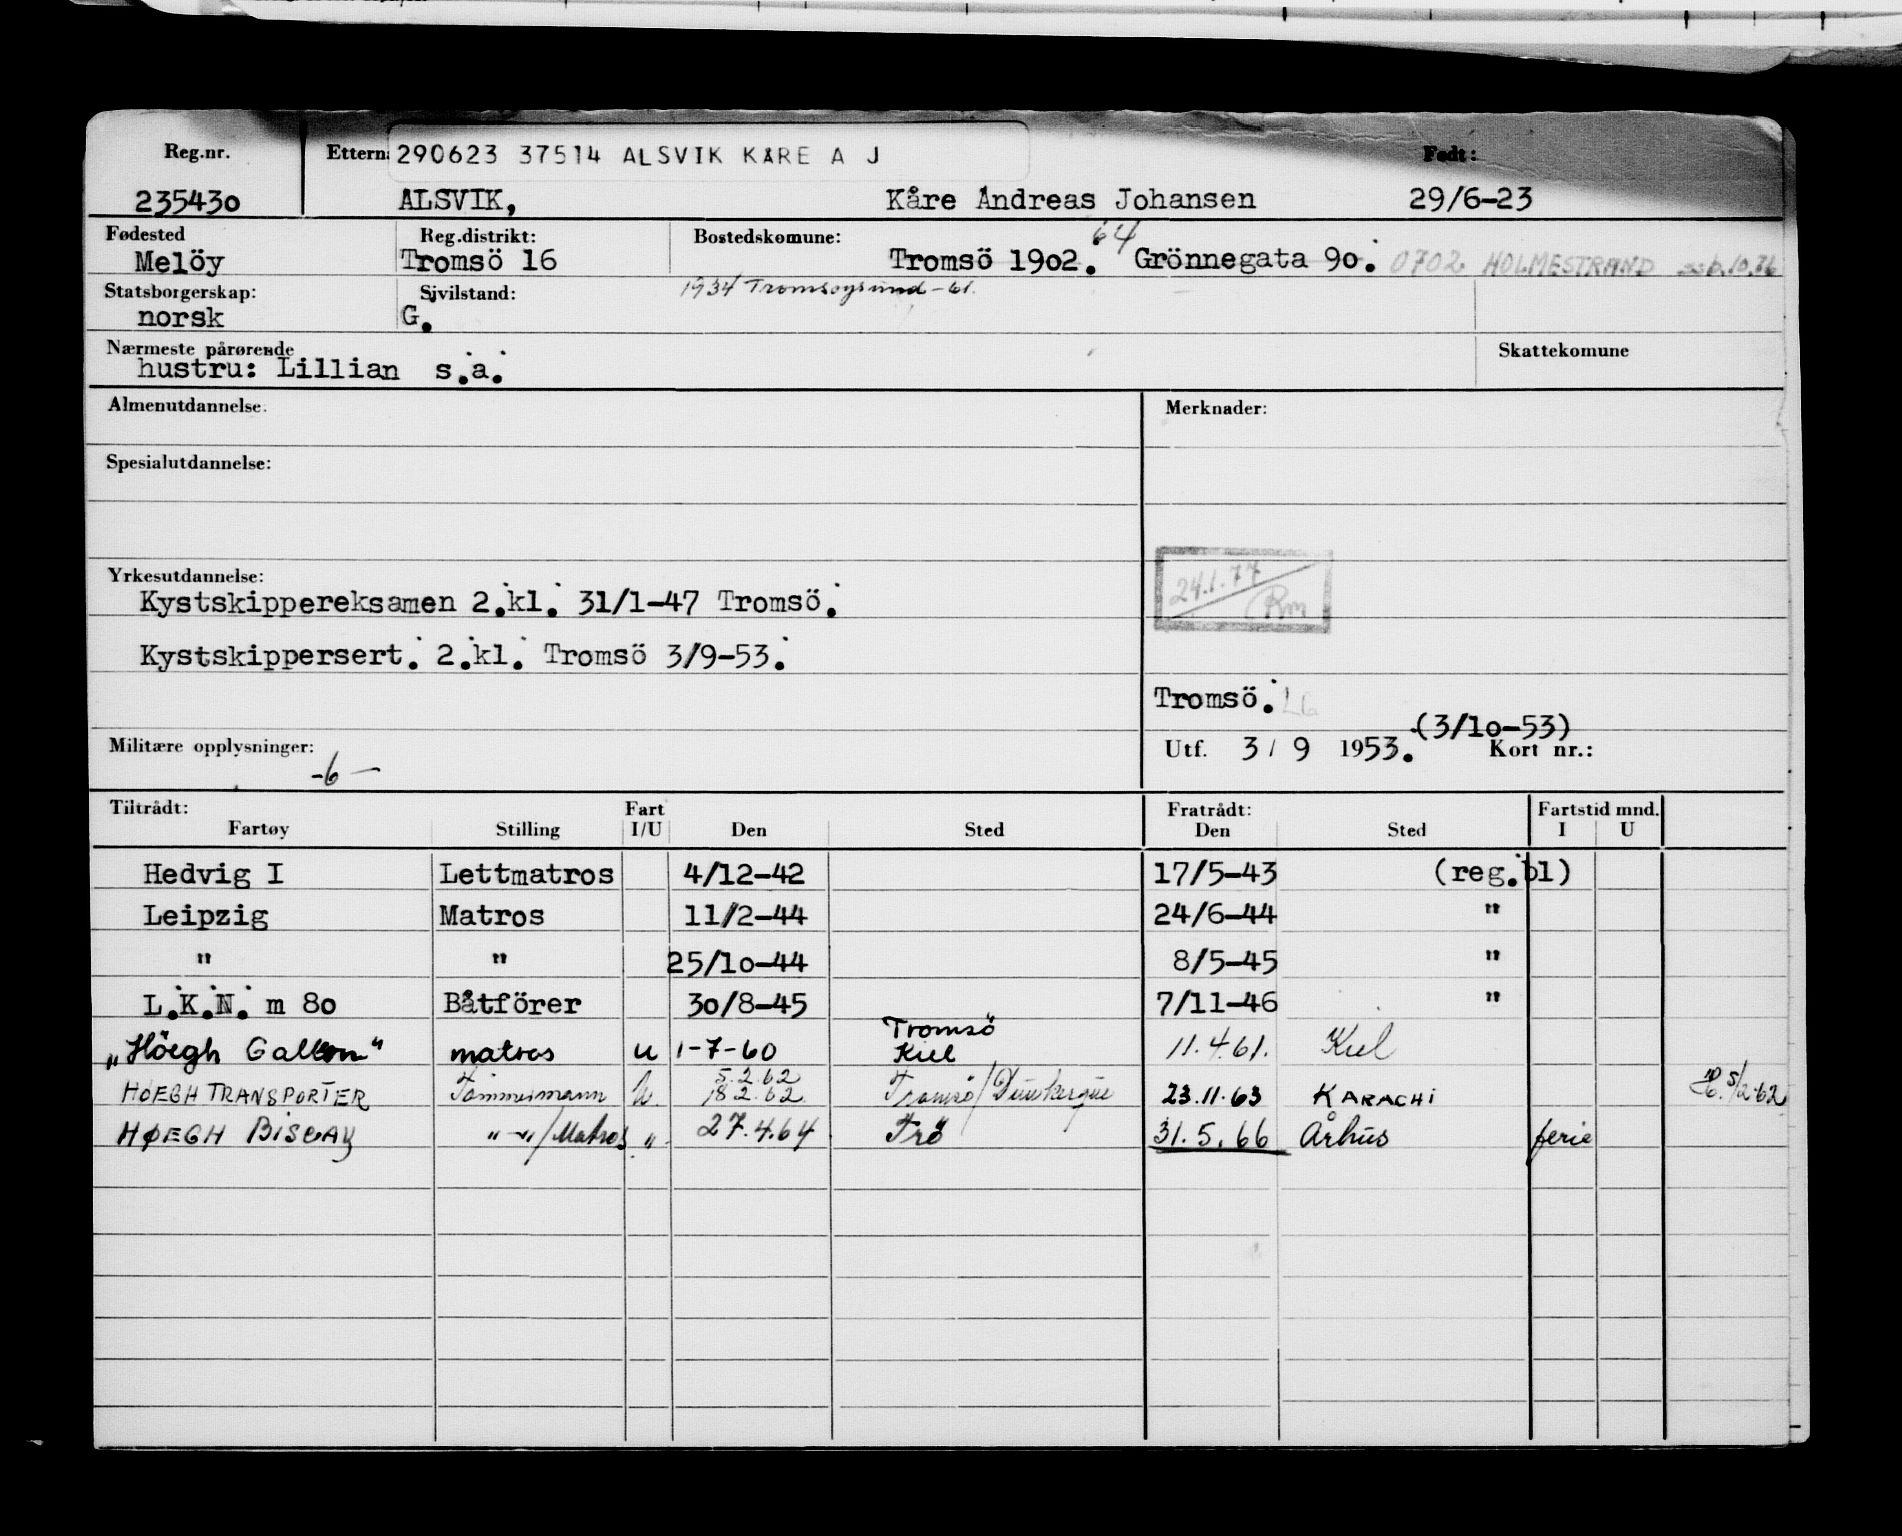 Reg.nr. Ettern: 290623 37514 ALSVIK KÅRE A J Født:
235430 ALSVIK, Kåre Andreas Johansen 29/6-23
Fødested Reg.distrikt: Bostedskomune: 64
Melöy Tromsö 16 Tromsö 1902. Grönnegata 90. 0702 HOLMESTRAND ssb.10.76
Statsborgerskap: Sivilstand: 1934 Tromsøysund -61.
norsk G.
Nærmeste pårørende Skattekomune
hustru: Lillian s.a.
Almenutdannelse. Merknader:
Spesialutdannelse:
Yrkesutdannelse: 24.1.77
Kystskippereksamen 2.kl. 31/1-47 Tromsö. Rm
Kystskippersert. 2.kl. Tromsö 3/9-53.
Tromsö.
(3/10-53)
Militære opplysninger: Utf. 3 / 9 1953. Kort nr.:
-6-
Tiltrådt: Fart Fratrådt: Fartstid mnd.
Fartøy Stilling I/U Den Sted Den Sted I U
Hedvig I Lettmatros 4/12-42 17/5-43 (reg.bl)
Leipzig Matros 11/2-44 24/6-44 "
" " 25/10-44 8/5-45 "
L.K.N. m 80 Båtförer 30/8-45 7/11-46 "
Tromsö
„Höegh Galleon" matros u 1-7-60 Kiel 11.4.61. Kiel
5.2.62
HÖEGH TRANSPORTER Tömmermann U. 18.2.62 Tromsö/Dunkerque 23.11.63 KARACHI 5/2-62
HØEGH BISCAY " - " /Matros " 27.4.64 Frö 31.5.66 Århus ferie